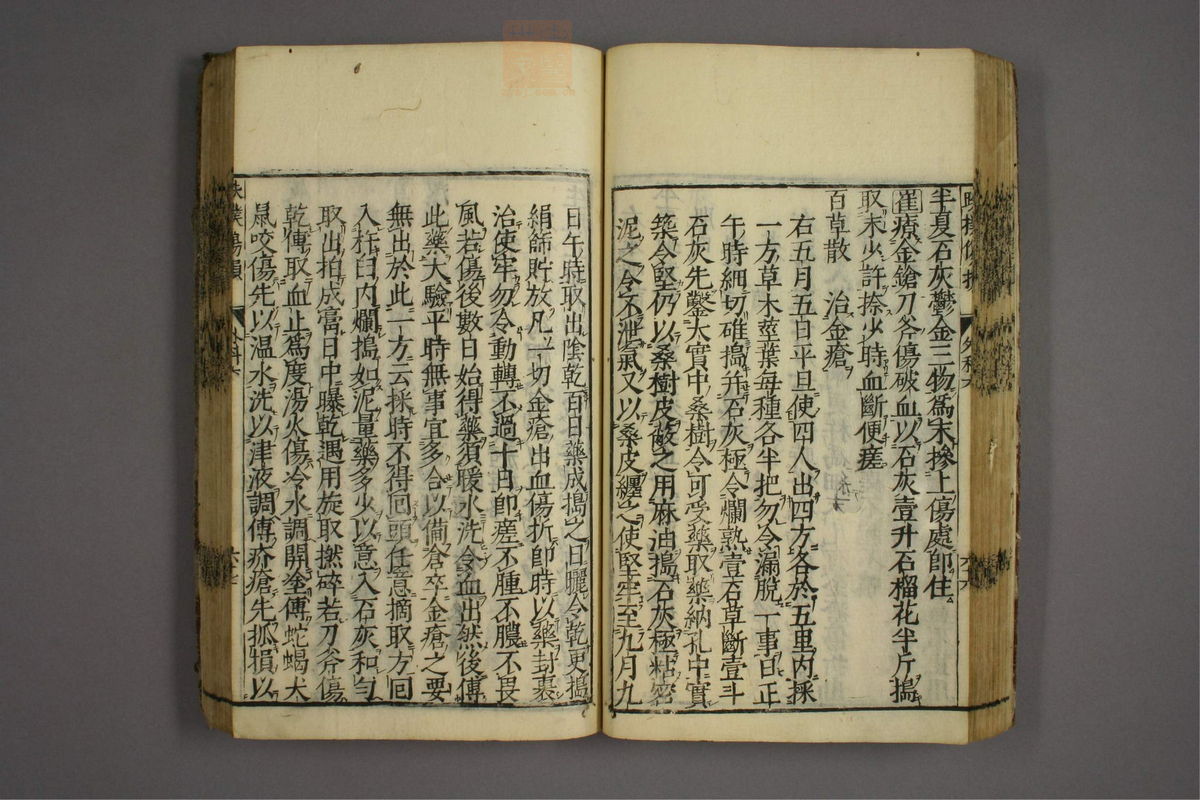 半夏石灰鬱金三物爲末摻上傷處即住
崔療金鎗刀斧傷破血以石灰壹升石榴花半斤搗
取末少許捺少時血斷便瘥
百草散　治金瘡
右五月五日平旦使四人出四方各於五里内採
一方草木莖葉每種各半把勿令漏脱一事日正
午時細切碓搗并石灰極令爛熟壹石草斷壹斗
石灰先鑿大實中桑樹令可受藥取藥納孔中實
築令堅仍以桑樹皮蔽之用麻油搗石灰極粘密
泥之令不泄氣又以桑皮纏之使堅牢至九月九
日午時取出陰乾百日藥成搗之日曬令乾更搗
絹篩貯放凡一切金瘡出血傷折即時以藥封裹
治使牢勿令動轉不過十日即瘥不腫不膿不畏
風若傷後數日始得藥須暖水洗令血出然後傅
此藥大驗平時無事宜多合以備倉卒金瘡之要
無出於此一方云採時不得回頭任意摘取方回
入杵臼内爛搗如泥量藥多少以意入石灰和勻
取出拍成窩日中曝乾遇用旋取撚碎若刀斧傷
乾傅取血止爲度湯火傷冷水調開塗傅蛇蝎犬
鼠咬傷先以温水洗以津液調傅疥瘡先抓損以